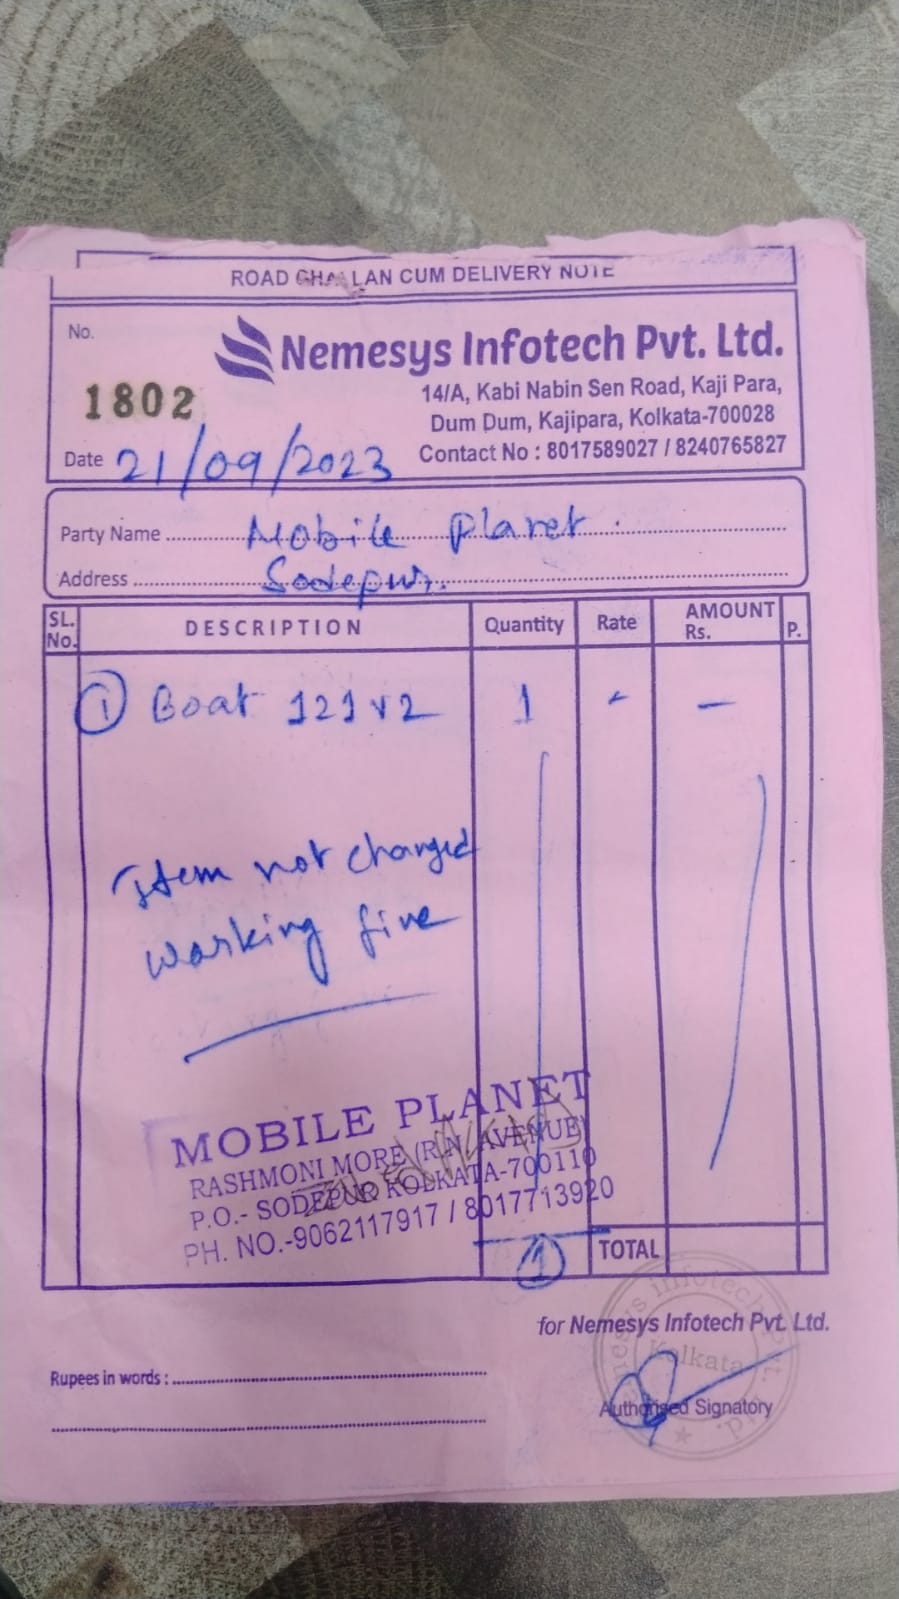 ROAD CHALLAN CUM DELIVERY NOTE
No.
1802
Nemesys Infotech Pvt. Ltd.
14/A, Kabi Nabin Sen Road, Kaji Para,
Dum Dum, Kajipara, Kolkata-700028
Contact No : 8017589027 / 8240765827
Date 21/09/2023
Party Name Mobile Planet
Address Sodepur.
SL. No. DESCRIPTION Quantity Rate AMOUNT Rs. P.
1 Boat 121 v2 1 - -
Item not changed
working fine
MOBILE PLANET
RASHMONI MORE (R.N. AVENUE)
P.O.- SODEPUR KOLKATA-700110
PH. NO.-9062117917 / 8017713920
1 TOTAL
for Nemesys Infotech Pvt. Ltd.
Nemesys Infotech Pvt. Ltd.
Kolkata
Rupees in words :
Authorised Signatory